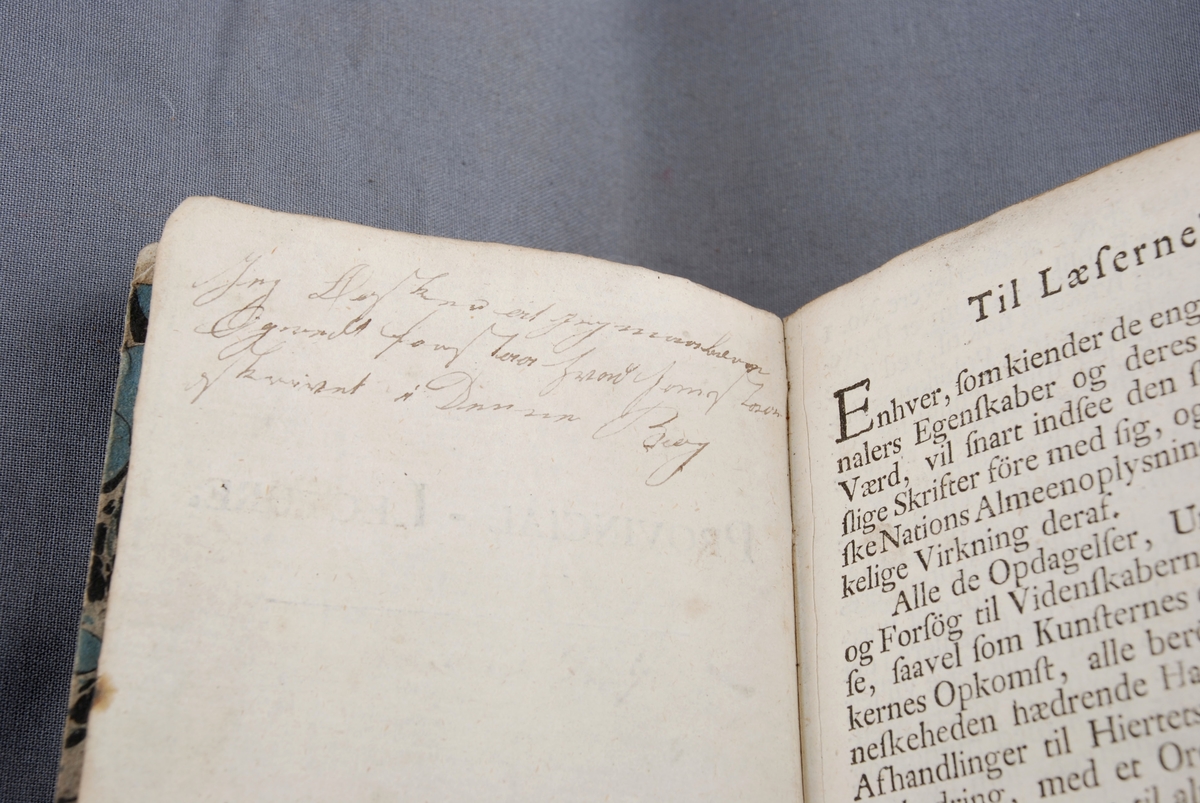 Jeg Ønsker at jeg maa
Og forstaa hvad som staar
skrivet i Denne Bog
PROVINCIAL-LECTURE.
Til Læſerne
Enhver, ſom kiender de eng
nalers Egenſkaber og deres
Værd, vil ſnart indſee den
ſlige Skrifter före med ſig, og
ſke Nations Almeenoplysnin
kelige Virkning deraf.
Alle de Opdagelſer, U
og Forſög til Videnſkabern
ſe, ſaavel ſom Kunſternes
kernes Opkomſt, alle berö
neſkeheden hædrende Ha
Afhandlinger til Hiertets
med et Or
til al